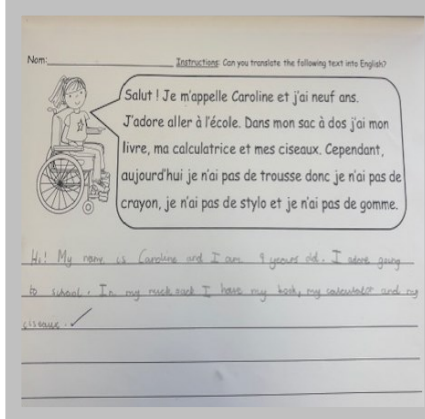 Nom: Instructions: Can you translate the following text into English?
Salut ! Je m'appelle Caroline et j'ai neuf ans.
J'adore aller à l'école. Dans mon sac à dos j'ai mon
livre, ma calculatrice et mes ciseaux. Cependant,
aujourd'hui je n'ai pas de trousse donc je n'ai pas de
crayon, je n'ai pas de stylo et je n'ai pas de gomme.
Hi! My name is Caroline and I am 9 years old. I adore going
to school. In my ruck sack I have my book, my calculator and my
ciseaux.